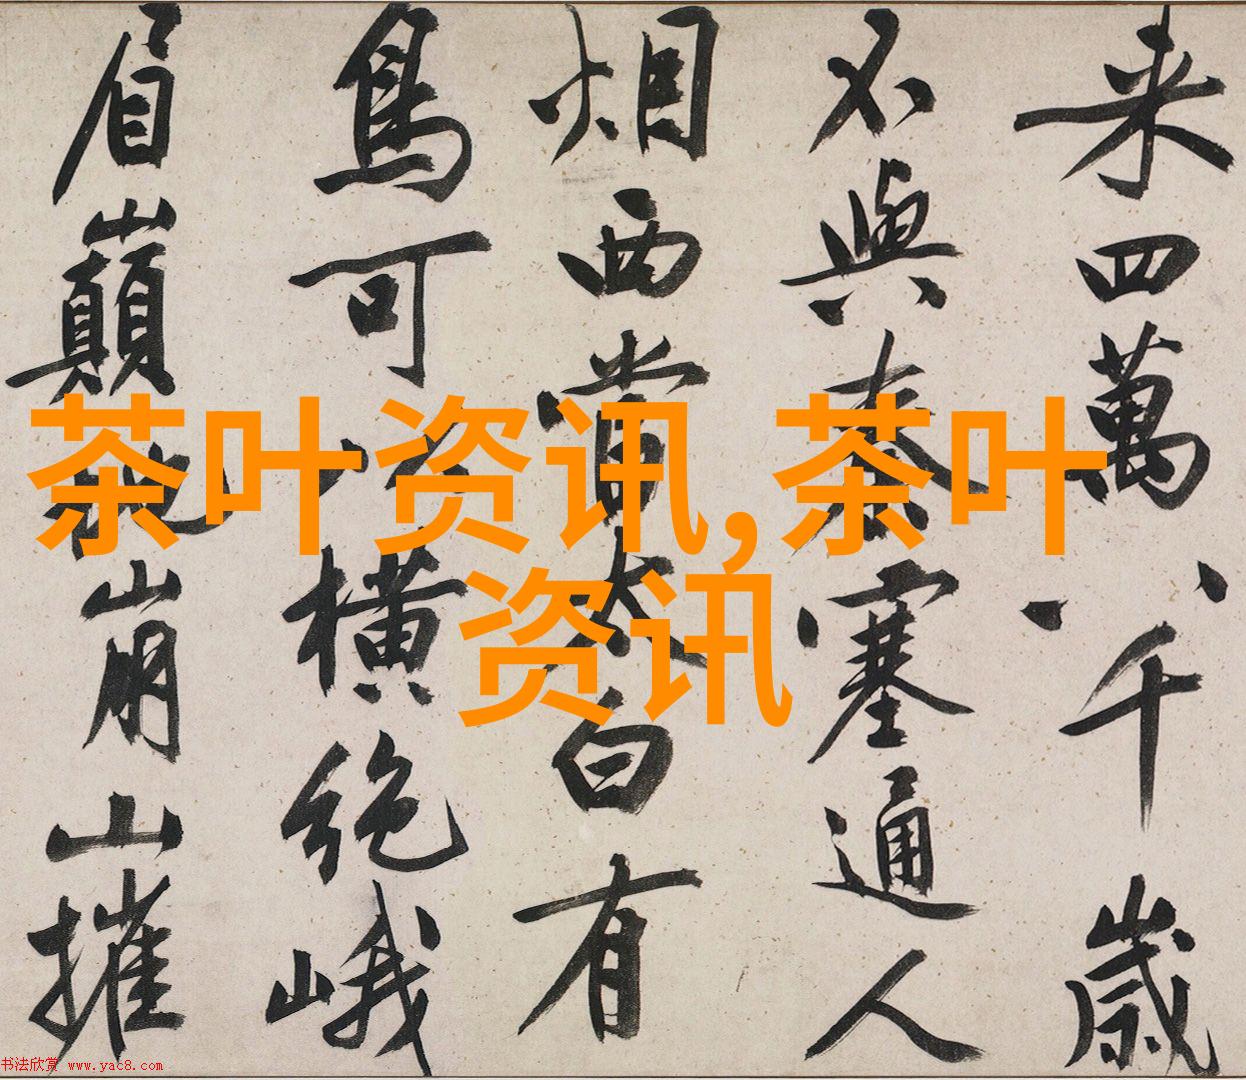 来四萬八千歲
不與秦塞通人
烟西當太白有
鳥可以橫絶峨
眉巔地崩山摧
茶叶资讯,茶叶
资讯
书法欣赏 www.yac8.com